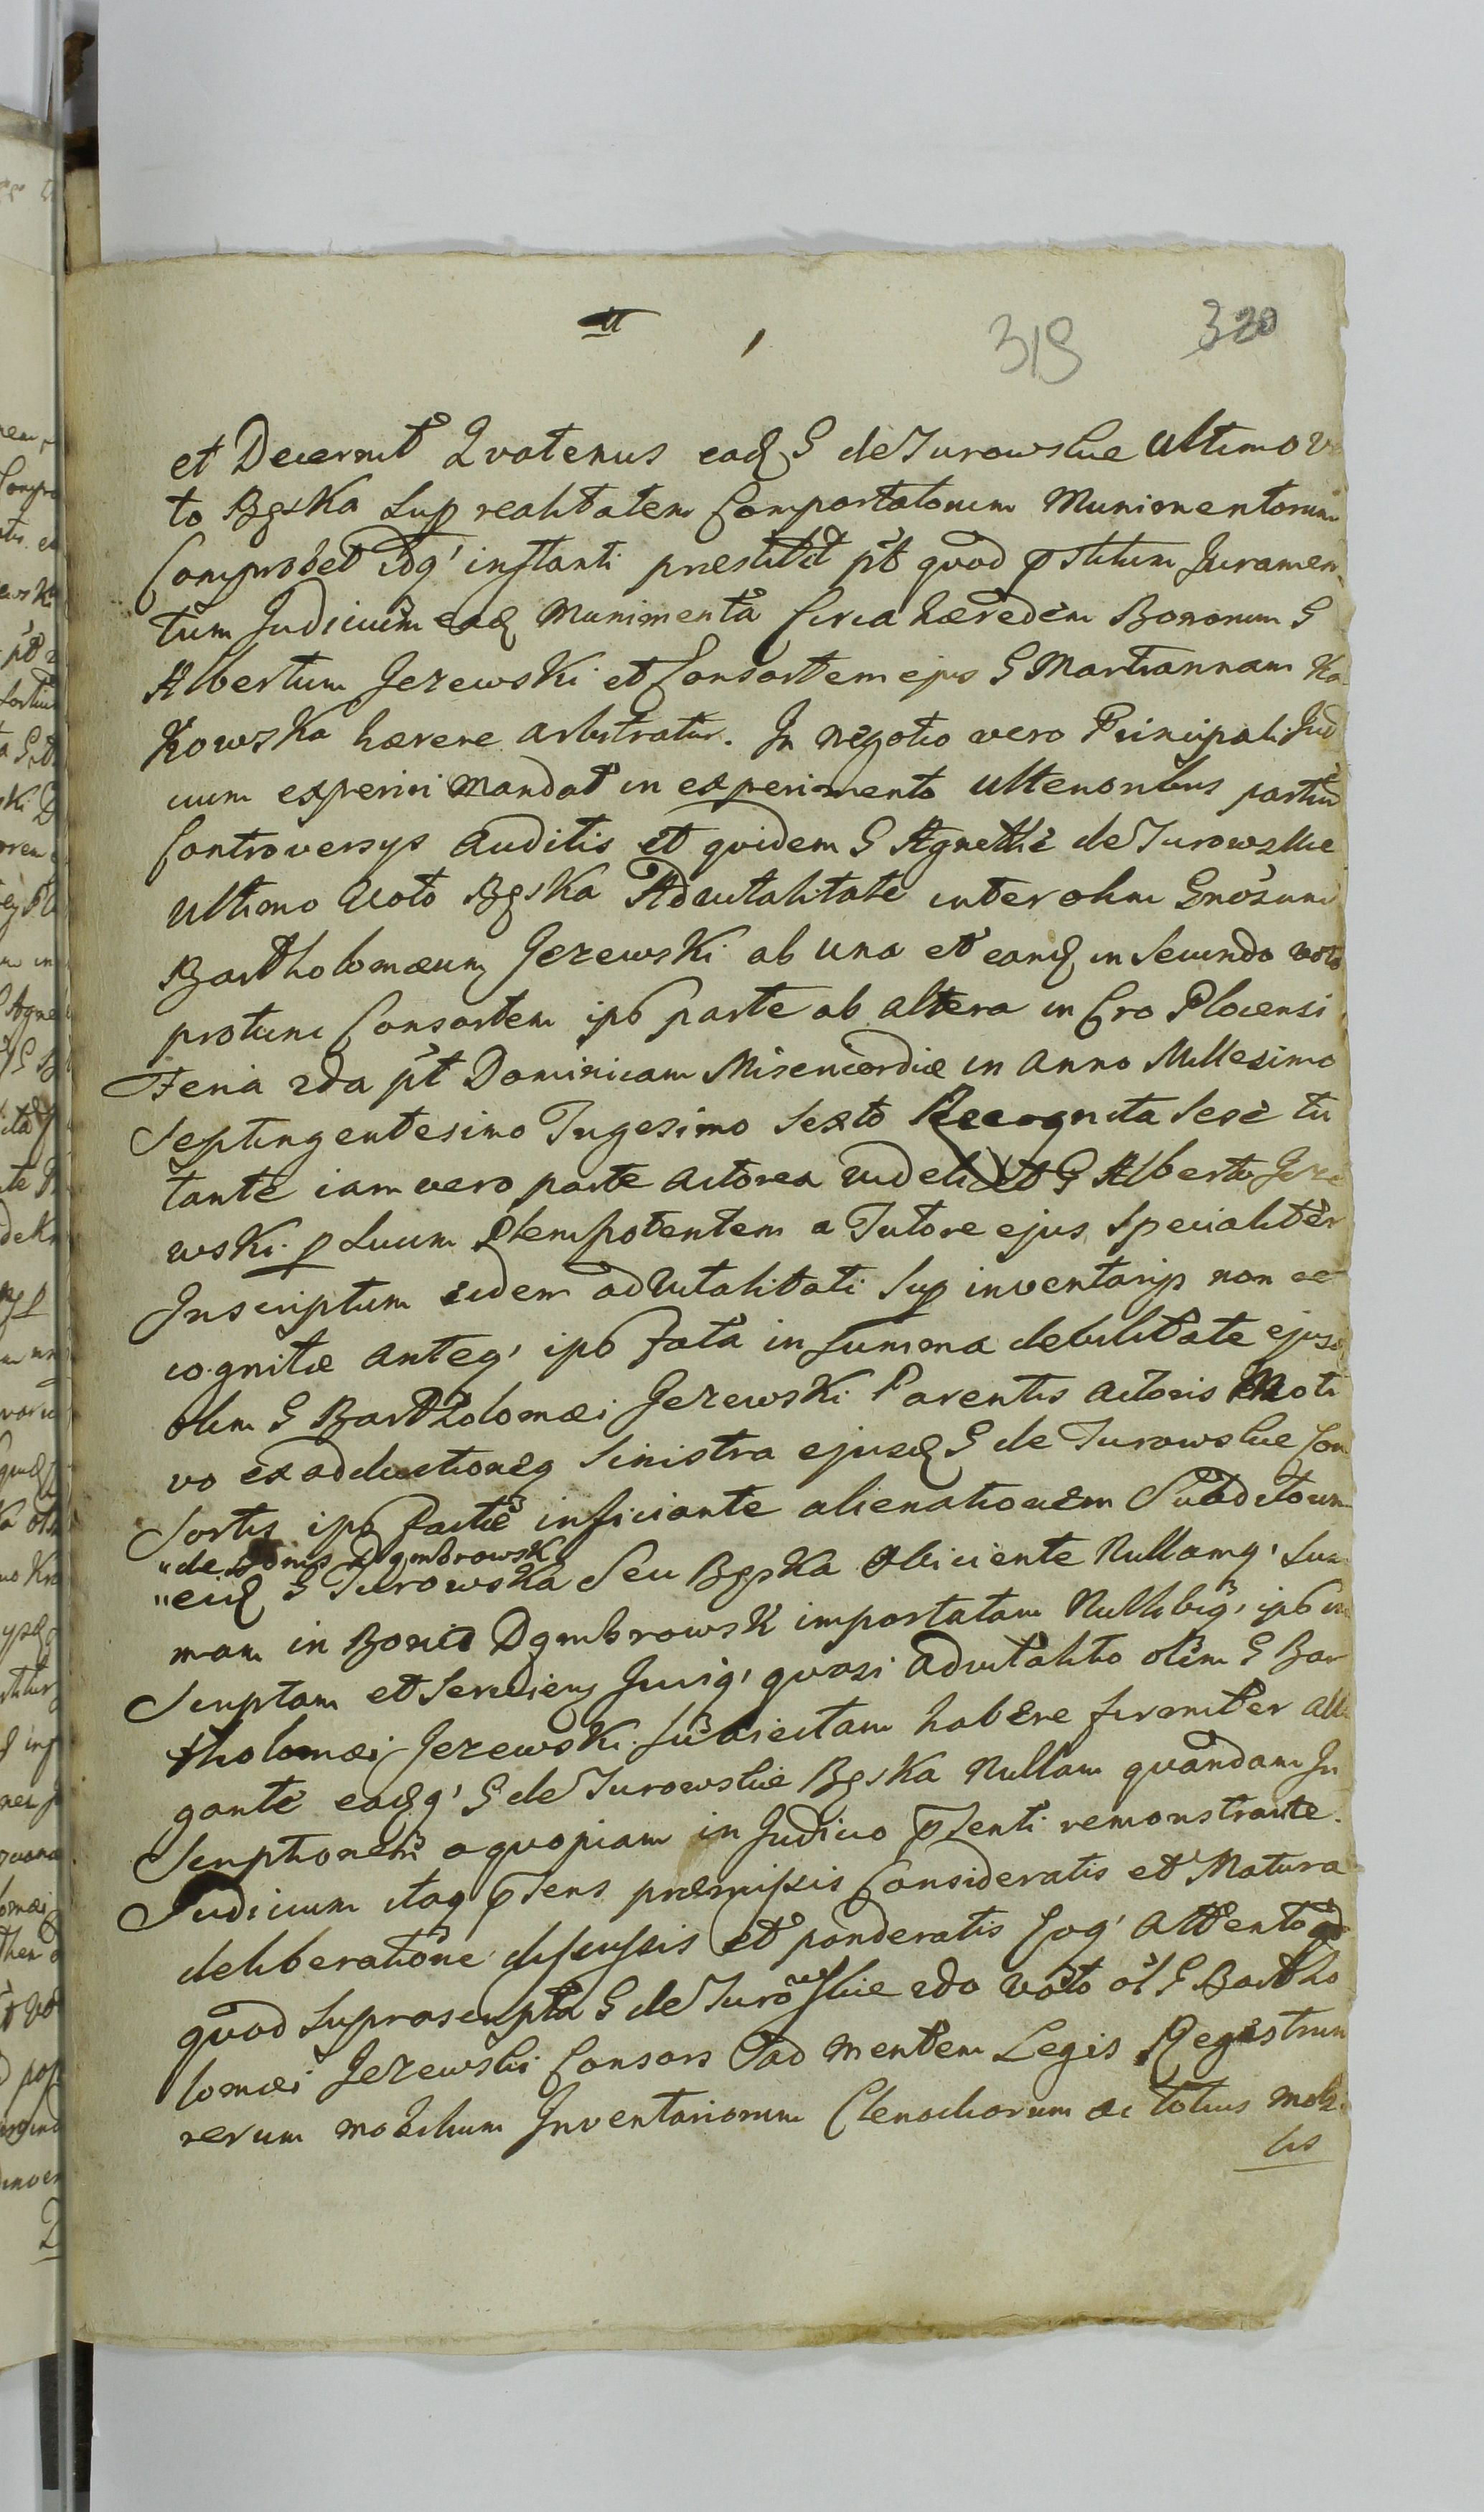 319 320
et Decernit Qvatenus eadq G de Turowskie Ultimo Vo
to BgsKa Sup realitatem Comportatorum Munimentorum
Comprobet Idq' instanti præstitit pt quod pstitum Juramen
tum Judicium eadq Munimenta circa hæredem Bonorum G
Albertum Jezewski et Consortem ejus G Mariannam Ka
KowsKa hærere arbitratur. In negotio vero Principali Judi
cium experiri Mandat in experimento Ulterioribus partiū
Controversys Auditis et qvidem G Agnethe de Turowskie
Ultimo Voto BgsKa Advitalitate inter olim Gnosum
Bartholomæum JezewsKi ab una et eandq in Secundo voto
protunc Consortem ips parte ab altera in Cro Plocensi
Feria 2da pt Dominicam Misericordiæ in Anno Millesimo
Septingentesimo Trigesimo Sexto Recognita Sese tu
tante iam vero parte Actorea videlicet G Alberto Jeze
wsKi p Suum Plenipotentem a Tutore ejus Specialiter
Inscriptum eidem advitalitati Sup inventarijs non re
cognitæ Anteq' ips fata in Summa debilitate ejusd
olim G Bartholomæi JezewsKi Parentis Actoris Moti
vo ex adductioneq Sinistra ejusdq G de Turowskie Con
Sortis ips factæ inficiante alienationem Subditorum
"de Bonis Dgmbrowsk
"eidq G TurowsKa Seu BgsKa Obiiciente Nullamq' Sum
mam in Bonis DgmbrowsK importatam Nullibiq' ips in
Scriptam et Servienq Juriq' quasi advitalitio olim G Bar
tholomæi JezewsKi Subiectam habere firmiter alle
gante eadqq' G de Turowskie BgsKa Nullam quandam In
Scriptionem aquopiam in Judicio pSenti remonstrante.
Judicium itaq pSens præmissis Consideratis et Matura
deliberatione discussis et ponderatis Eoq' Attento
quod Suprascripta G de Turowskie 2do voto ol G Bartho
lomæi Jezewski Consors ad Mentem Legis Regestrum
rerum mobilium Inventariorum Clenodiorum ac totius mobi
lis